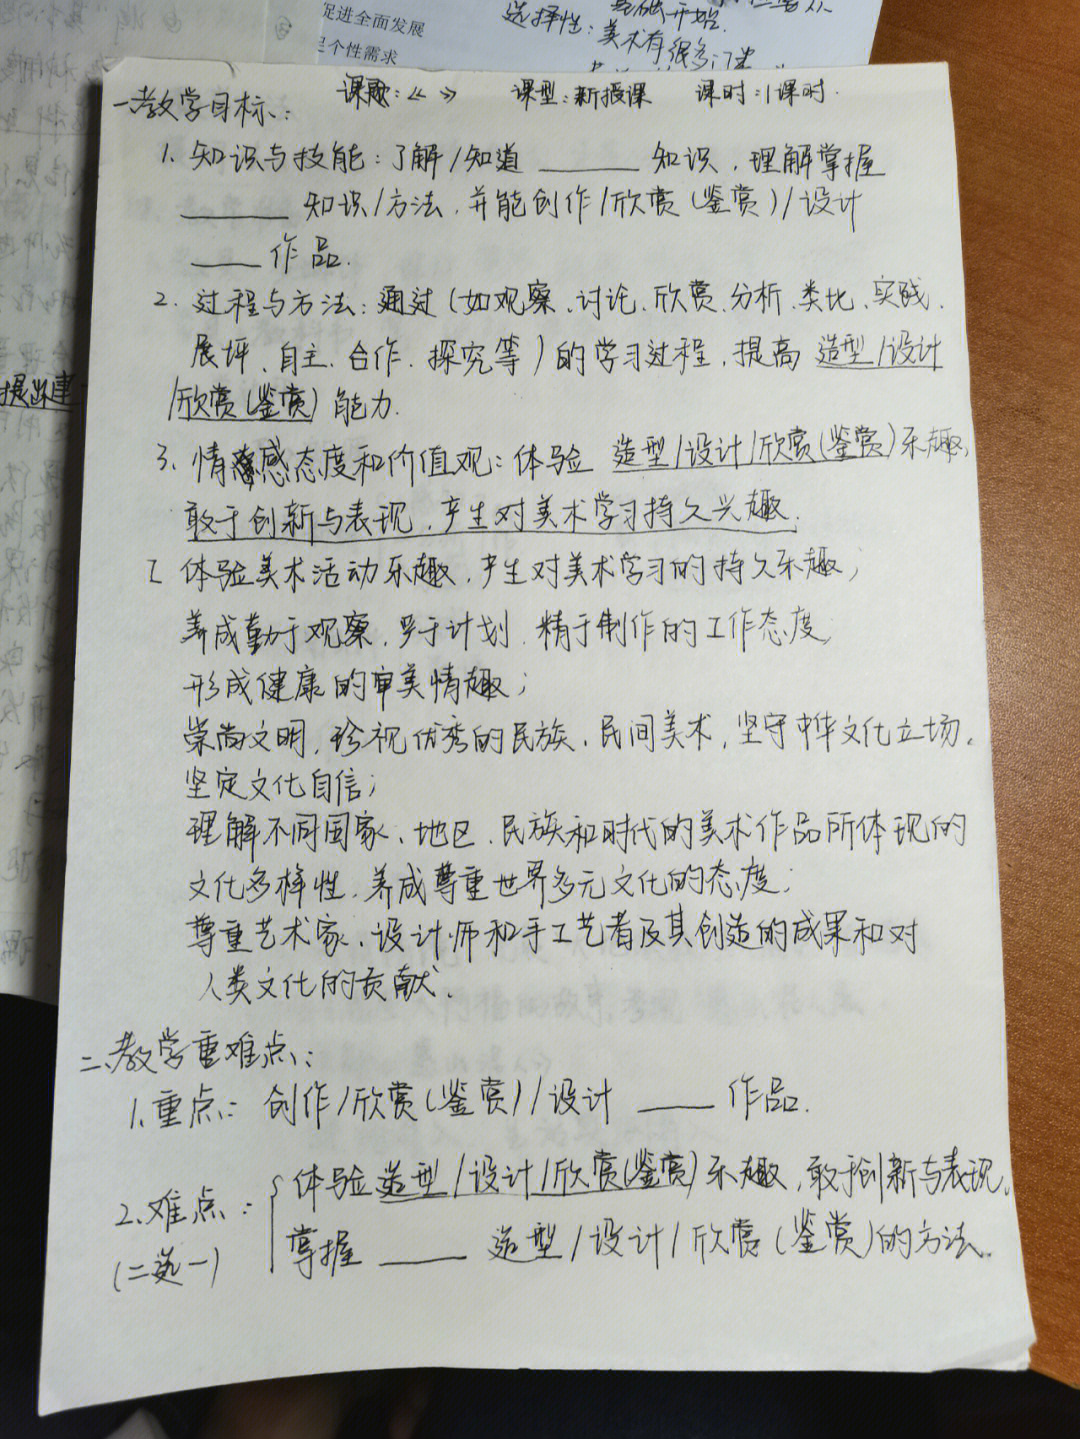 促进全面发展
个性需求
选择性：美术有很多门类
基础开始.
课题：《 》 课型：新授课 课时：1课时.
一、教学目标：
1. 知识与技能：了解/知道 ______ 知识，理解掌握
______ 知识/方法，并能创作/欣赏(鉴赏)/设计
____ 作品.
2. 过程与方法：通过(如观察、讨论、欣赏、分析、类比、实践、
展评、自主、合作、探究等)的学习过程，提高 造型/设计
/欣赏(鉴赏)能力.
3. 情感态度和价值观：体验 造型/设计/欣赏(鉴赏)乐趣，
敢于创新与表现，产生对美术学习持久兴趣.
[ 体验美术活动乐趣，产生对美术学习的持久乐趣；
养成勤于观察，罗于计划，精于制作的工作态度；
形成健康的审美情趣；
崇尚文明，珍视优秀的民族、民间美术，坚守中华文化立场，
坚定文化自信；
理解不同国家、地区、民族和时代的美术作品所体现的
文化多样性，养成尊重世界多元文化的态度；
尊重艺术家、设计师和手工艺者及其创造的成果和对
人类文化的贡献.
二、教学重难点：
1. 重点：创作/欣赏(鉴赏)/设计 ____ 作品.
2. 难点：{ 体验造型/设计/欣赏(鉴赏)乐趣，敢于创新与表现。
(二选一) 掌握 ____ 造型/设计/欣赏(鉴赏)的方法.